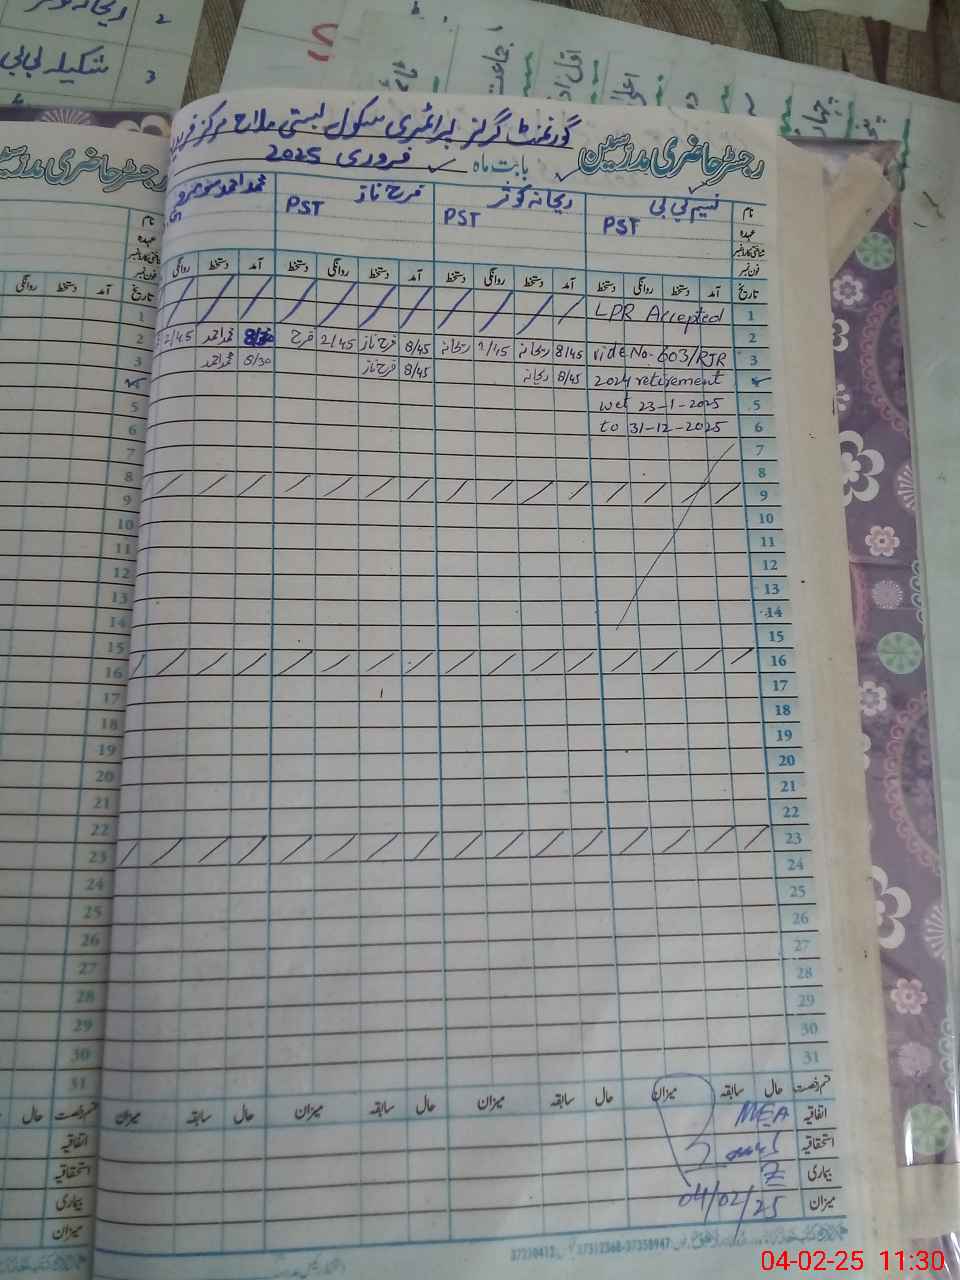 گورنمنٹ گرلز پرائمری سکول بستی ملاح مرکز
رجسٹر حاضری مدرسین بابت ماہ فروری 2025
نام نسیم بی بی ریحانہ کوثر فرح ناز محمد احمد
عہدہ PST PST PST
فون نمبر
تاریخ آمد دستخط روانگی دستخط آمد دستخط روانگی دستخط آمد دستخط روانگی دستخط آمد دستخط روانگی
1 LPR Accepted
2
3 vide No. 603/RJR 8/45 ریحانہ 2/45 ریحانہ 8/45 فرح ناز 2/45 فرح 8/30 محمد احمد 2/45
2024 retirement 8/45 ریحانہ 8/45 فرح ناز 8/30 محمد احمد
5 wef 23-1-2025
6 to 31-12-2025
7
8
9
10
11
12
13
14
15
16
17
18
19
20
21
22
23
24
25
26
27
28
29
30
31
قسم رخصت حال سابقہ میزان حال سابقہ میزان حال سابقہ میزان حال سابقہ میزان
اتفاقیہ MEA
استحقاقیہ
بیماری
میزان 04/02/25
37230412 37312368-37358947
رجسٹر حاضری مدرسین
نام
عہدہ
فون نمبر
تاریخ آمد دستخط روانگی
1
2
3
5
6
7
8
9
10
11
12
13
14
15
16
17
18
19
20
21
22
23
24
25
26
27
28
29
30
31
قسم رخصت حال
اتفاقیہ
استحقاقیہ
بیماری
میزان
2
3 شکیلہ بی بی
04-02-25 11:30